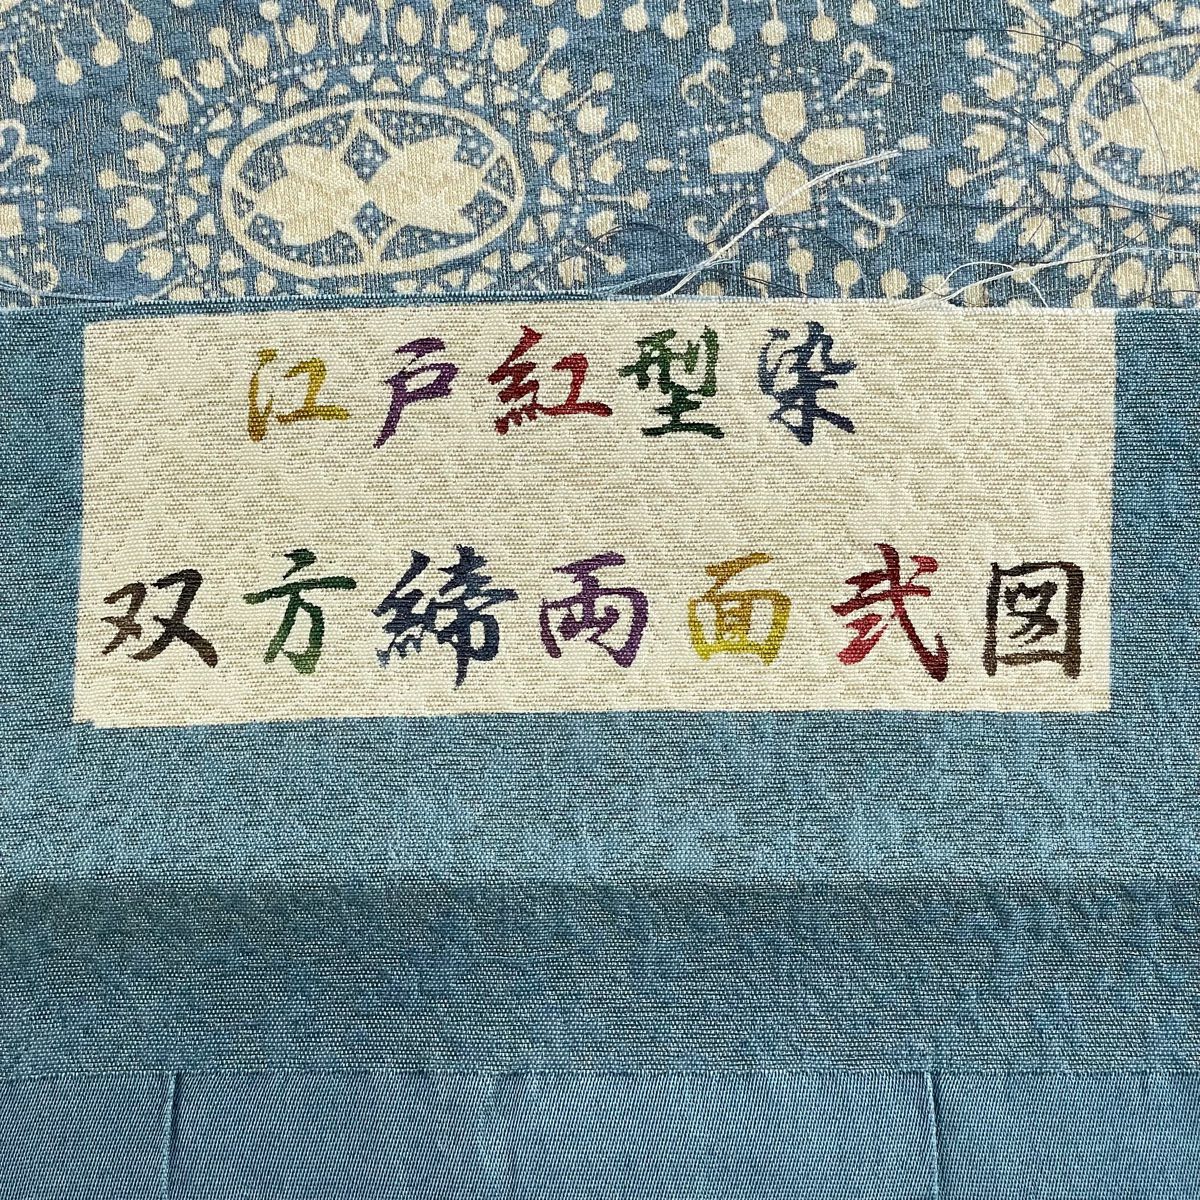 江戸紅型染
双方締両面弐図